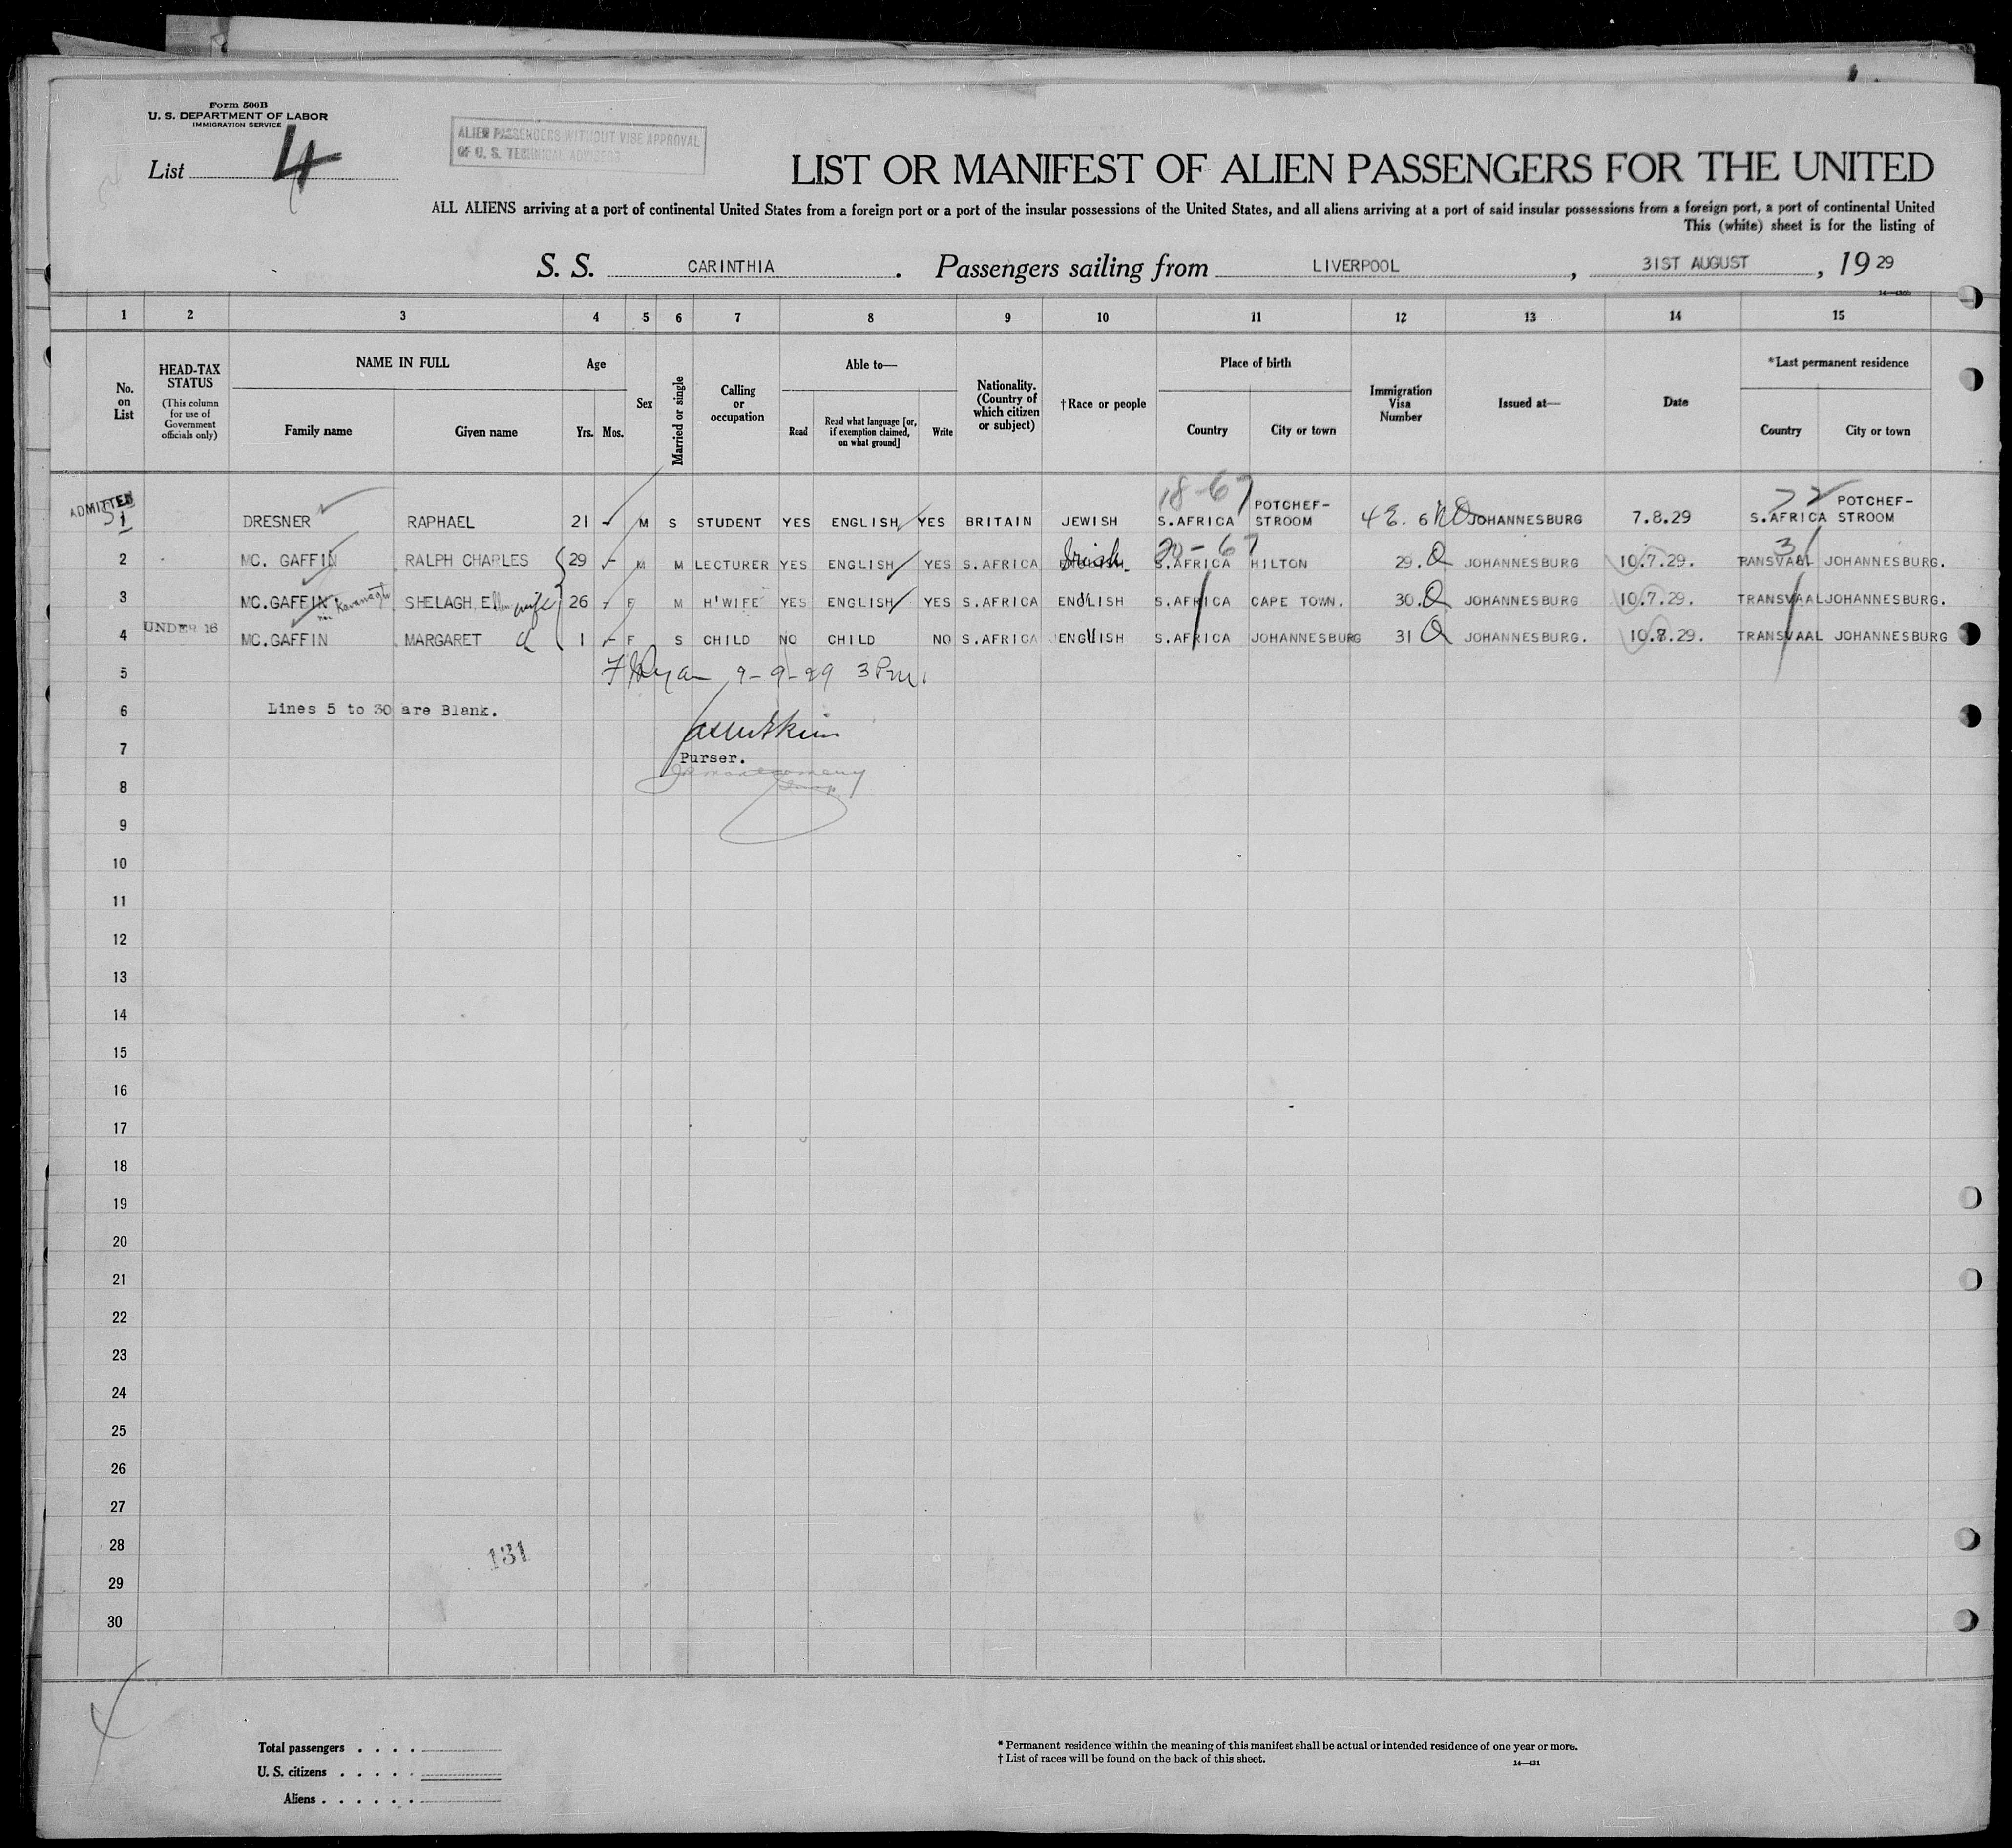 Form 500B
U. S. DEPARTMENT OF LABOR
IMMIGRATION SERVICE
List 4
ALIEN PASSENGERS WITHOUT VISE APPROVAL
OF U. S. TECHNICAL ADVISERS
LIST OR MANIFEST OF ALIEN PASSENGERS FOR THE UNITED
ALL ALIENS arriving at a port of continental United States from a foreign port or a port of the insular possessions of the United States, and all aliens arriving at a port of said insular possessions from a foreign port, a port of continental United
This (white) sheet is for the listing of
S. S. CARINTHIA . Passengers sailing from LIVERPOOL , 31ST AUGUST , 19 29
1 2 3 4 5 6 7 8 9 10 11 12 13 14 15
No. on List
HEAD-TAX STATUS (This column for use of Government officials only)
NAME IN FULL
Family name Given name
Age
Yrs. Mos.
Sex
Married or single
Calling or occupation
Able to—
Read Read what language [or, if exemption claimed, on what ground] Write
Nationality. (Country of which citizen or subject)
†Race or people
Place of birth
Country City or town
Immigration Visa Number
Issued at—
Date
*Last permanent residence
Country City or town
18-67 POTCHEF- 72 POTCHEF-
ADMITTED
1 DRESNER RAPHAEL 21 - M S STUDENT YES ENGLISH YES BRITAIN JEWISH S.AFRICA STROOM 48. 6 JOHANNESBURG 7.8.29 S.AFRICA STROOM
20-67 31
2 MC. GAFFIN RALPH CHARLES 29 - M M LECTURER YES ENGLISH YES S.AFRICA Irish S.AFRICA HILTON 29. Q JOHANNESBURG 10.7.29. TRANSVAAL JOHANNESBURG.
3 MC.GAFFIN Kavanagh SHELAGH, Ellen wife 26 - F M H'WIFE YES ENGLISH YES S.AFRICA ENGLISH S.AFRICA CAPE TOWN. 30. Q JOHANNESBURG 10.7.29. TRANSVAAL JOHANNESBURG.
UNDER 16
4 MC.GAFFIN MARGARET 1 - F S CHILD NO CHILD NO S.AFRICA ENGLISH S.AFRICA JOHANNESBURG 31 Q JOHANNESBURG. 10.7.29. TRANSVAAL JOHANNESBURG
5 Ryan 9-9-29 3 Pm.
6 Lines 5 to 30 are Blank.
7 Purser.
8
9
10
11
12
13
14
15
16
17
18
19
20
21
22
23
24
25
26
27
28 131
29
30
Total passengers . . . .
U. S. citizens . . . . .
Aliens . . . . . .
* Permanent residence within the meaning of this manifest shall be actual or intended residence of one year or more.
† List of races will be found on the back of this sheet.
14—431